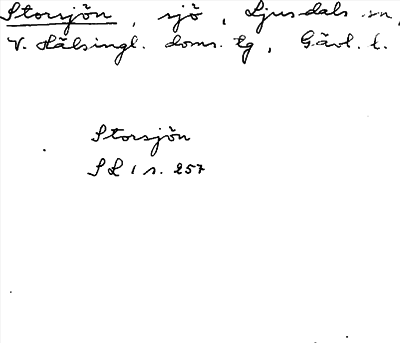 Storsjön, sjö, Ljusdals sn,
V. Hälsingl. doms. tg, Gävl. l.
Storsjön
SL 1 s. 257